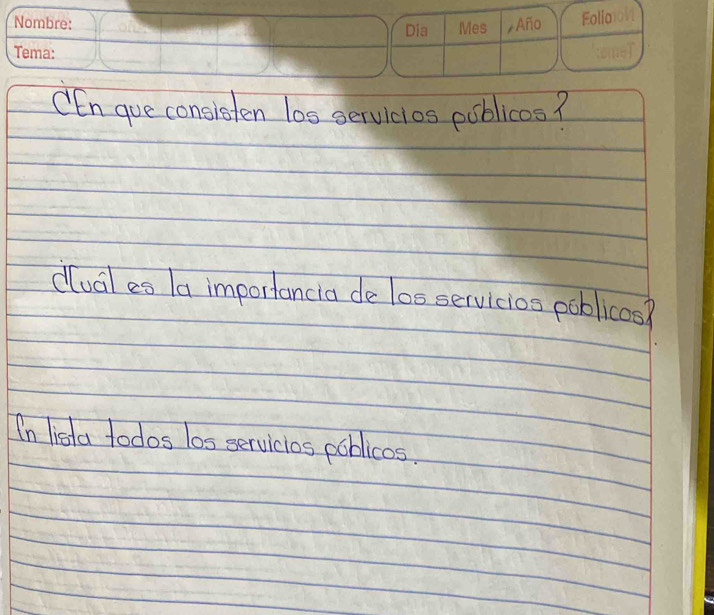 Nombre:
Día Mes Año Folio
Tema:
¿En que consisten los servicios públicos?
¿Cuál es la importancia de los servicios públicos?
En lista todos los servicios públicos.